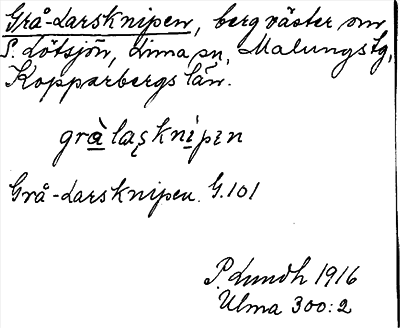 Grå-Larsknipen, berg väster om
S. Lötsjön, Lima sn, Malungs tg,
Kopparbergs län.
Grå-Larsknipen. G.101
P. Lundh 1916
Ulma 300:2